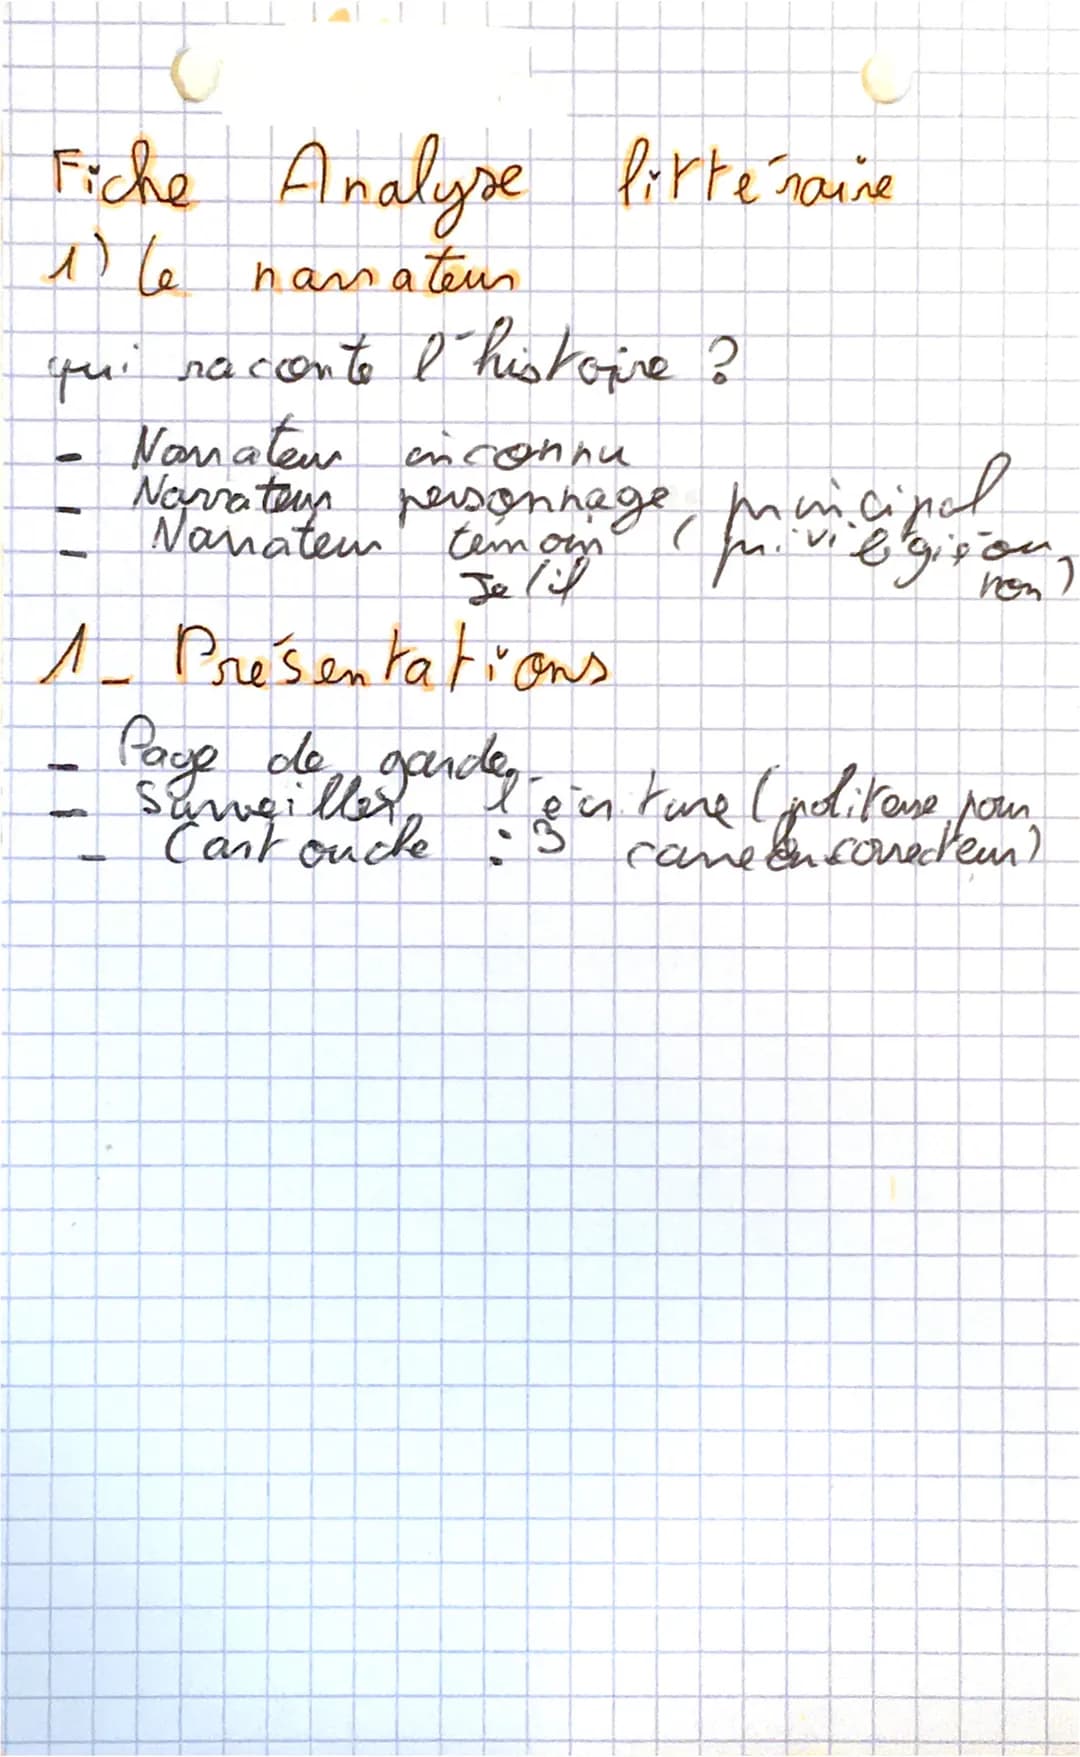 Fiche Analyse littéraire
1) Le narrateur
qui raconte l'histoire ?
- Narrateur inconnu
- Narrateur personnage principal
- Narrateur témoin (privilégié ou non)
Je/il
1_ Présentations
- Page de garde
- Surveiller l'écriture (politesse pour correcteur)
- Cartouche : 3 carreaux